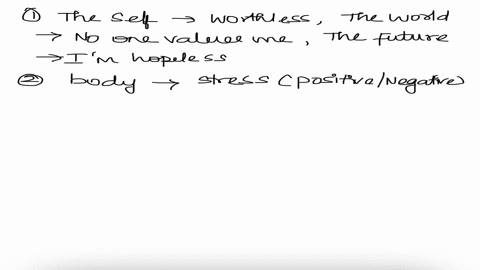 ① The self → worthless, The world
→ No one values me, The future
→ I'm hopeless
② body → stress (positive/Negative)